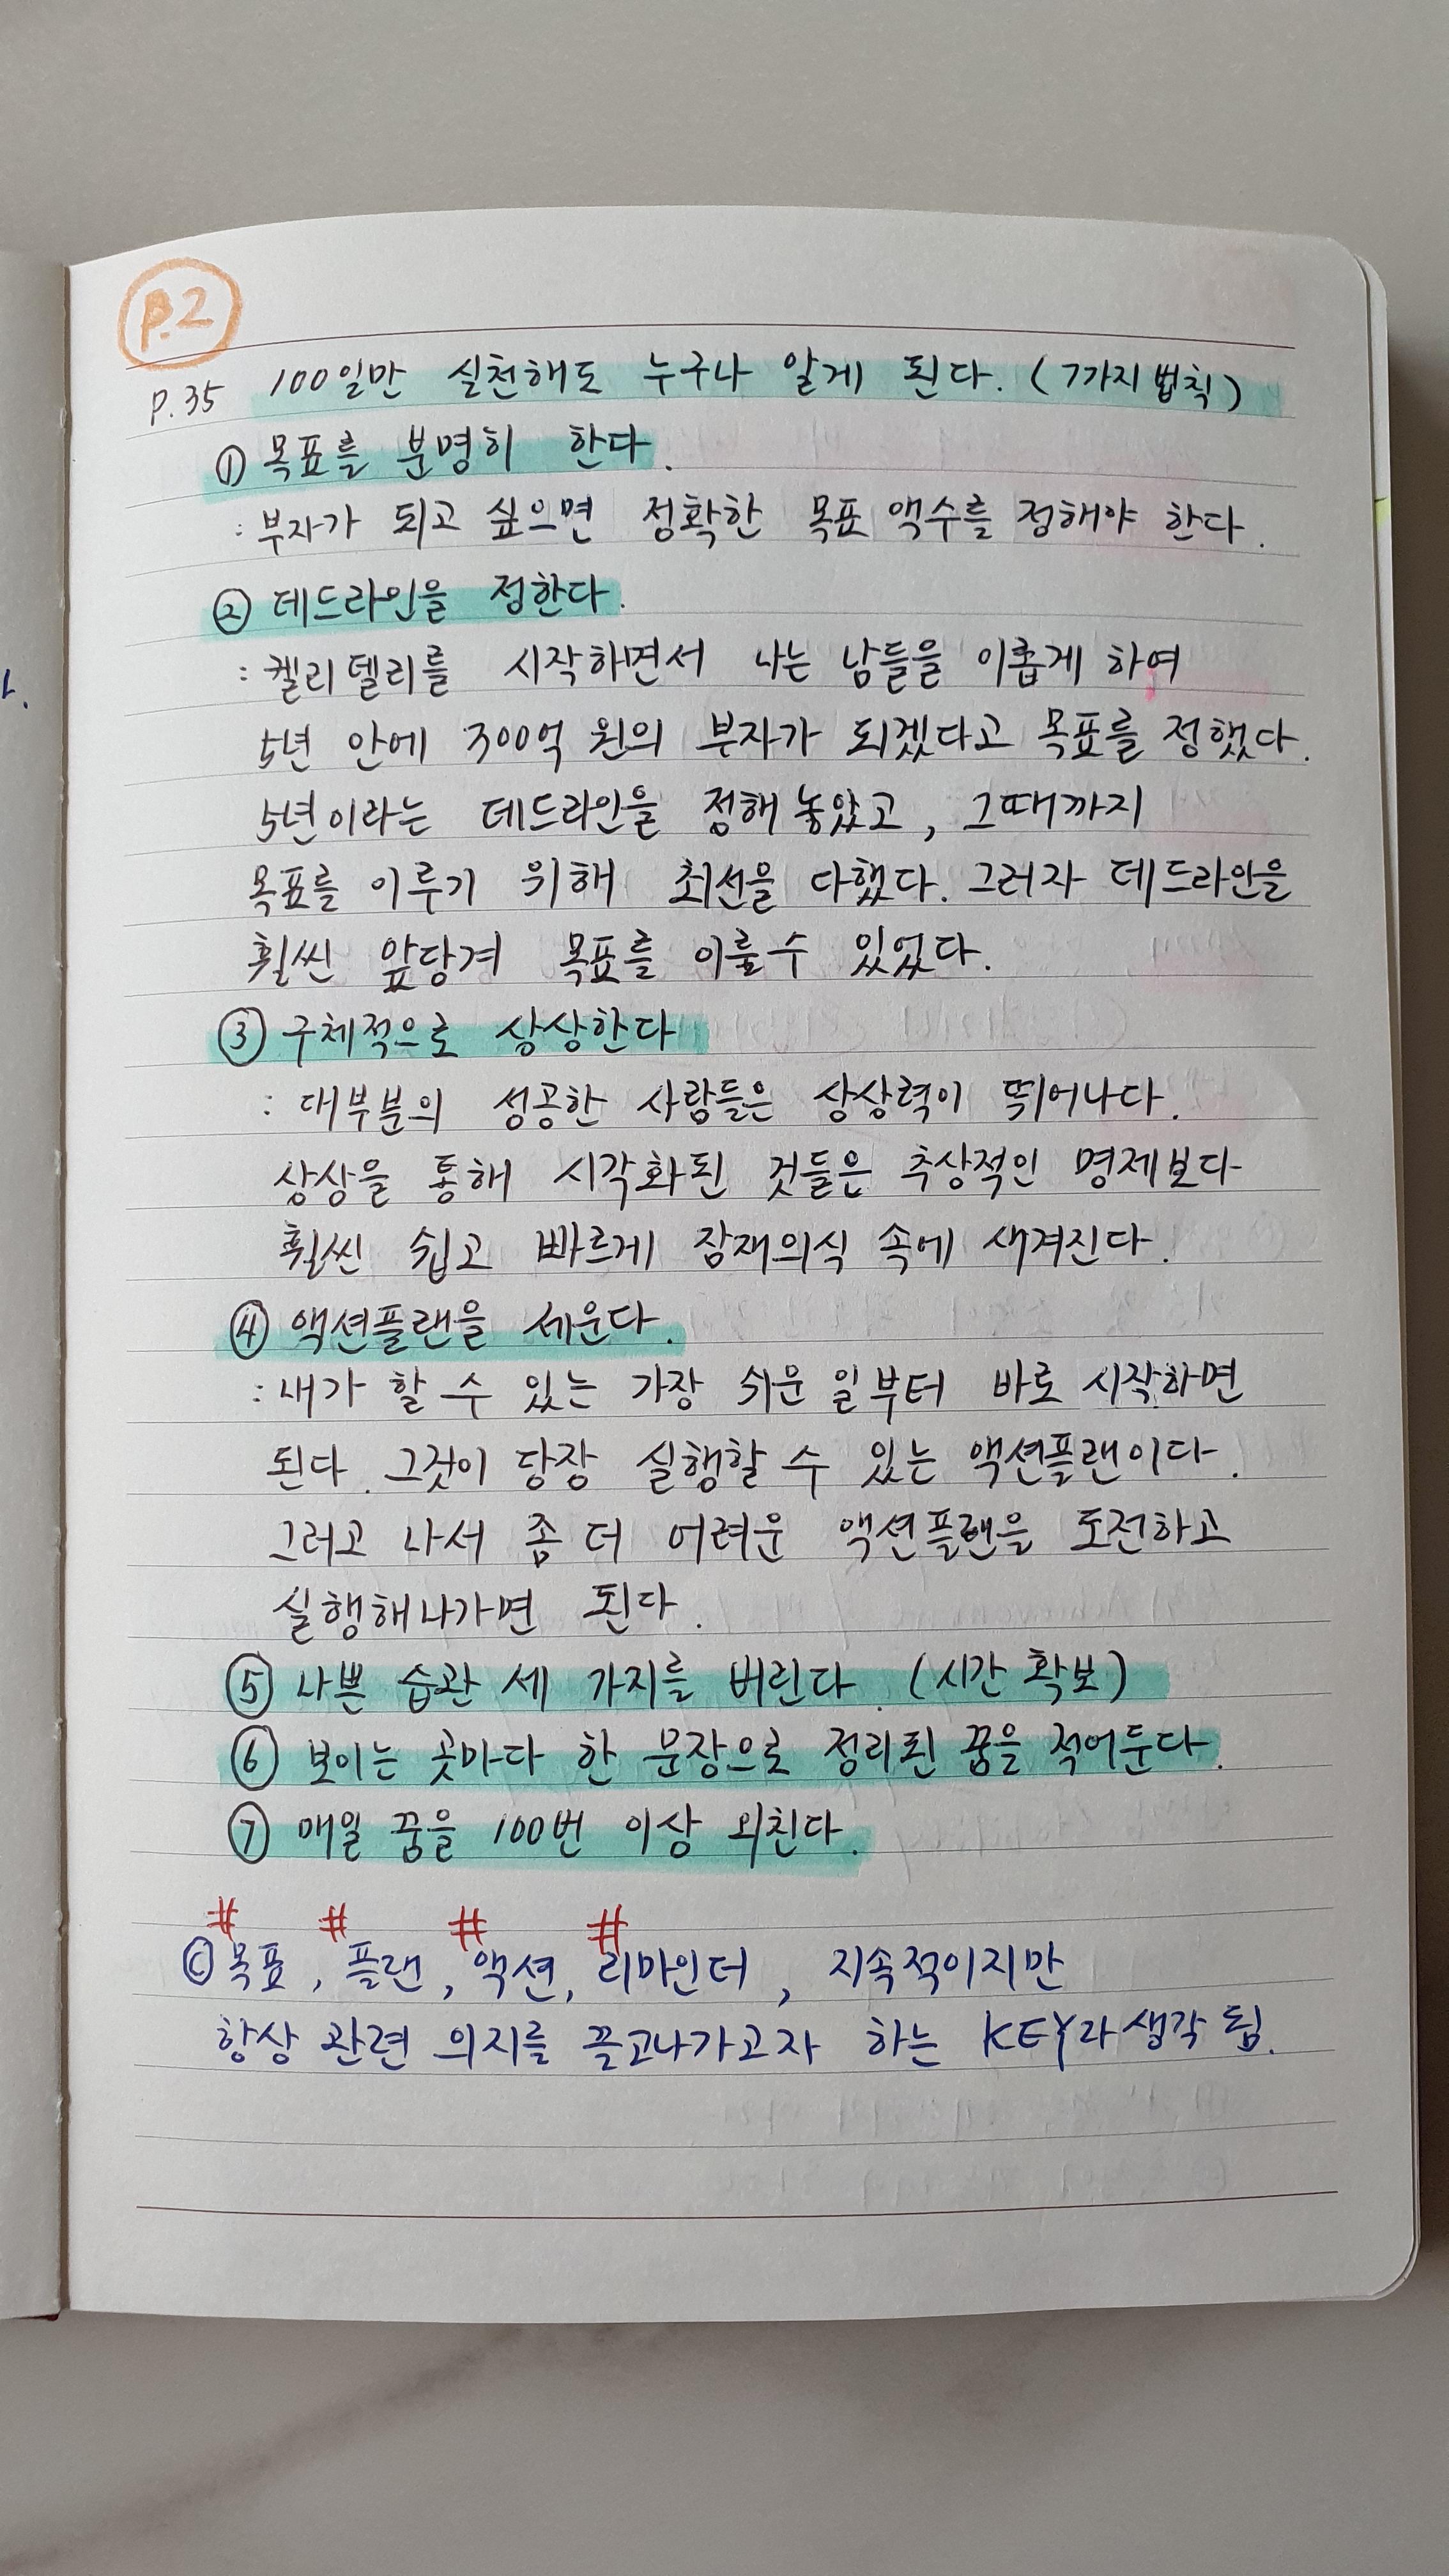 P.2
P.35 100일만 실천해도 누구나 알게 된다. (7가지 법칙)
① 목표를 분명히 한다.
: 부자가 되고 싶으면 정확한 목표 액수를 정해야 한다.
② 데드라인을 정한다.
: 켈리델리를 시작하면서 나는 남들을 이롭게 하여
5년 안에 300억 원의 부자가 되겠다고 목표를 정했다.
5년이라는 데드라인을 정해 놓았고, 그때까지
목표를 이루기 위해 최선을 다했다. 그러자 데드라인을
훨씬 앞당겨 목표를 이룰 수 있었다.
③ 구체적으로 상상한다
: 대부분의 성공한 사람들은 상상력이 뛰어나다.
상상을 통해 시각화된 것들은 추상적인 명제보다
훨씬 쉽고 빠르게 잠재의식 속에 새겨진다.
④ 액션플랜을 세운다.
: 내가 할 수 있는 가장 쉬운 일부터 바로 시작하면
된다. 그것이 당장 실행할 수 있는 액션플랜이다.
그러고 나서 좀 더 어려운 액션플랜을 도전하고
실행해나가면 된다.
⑤ 나쁜 습관 세 가지를 버린다. (시간 확보)
⑥ 보이는 곳마다 한 문장으로 정리된 꿈을 적어둔다.
⑦ 매일 꿈을 100번 이상 외친다.
# # # #
ⓒ 목표, 플랜, 액션, 리마인더, 지속적이지만
항상 관련 의지를 끌고나가고자 하는 KEY라 생각 됨.